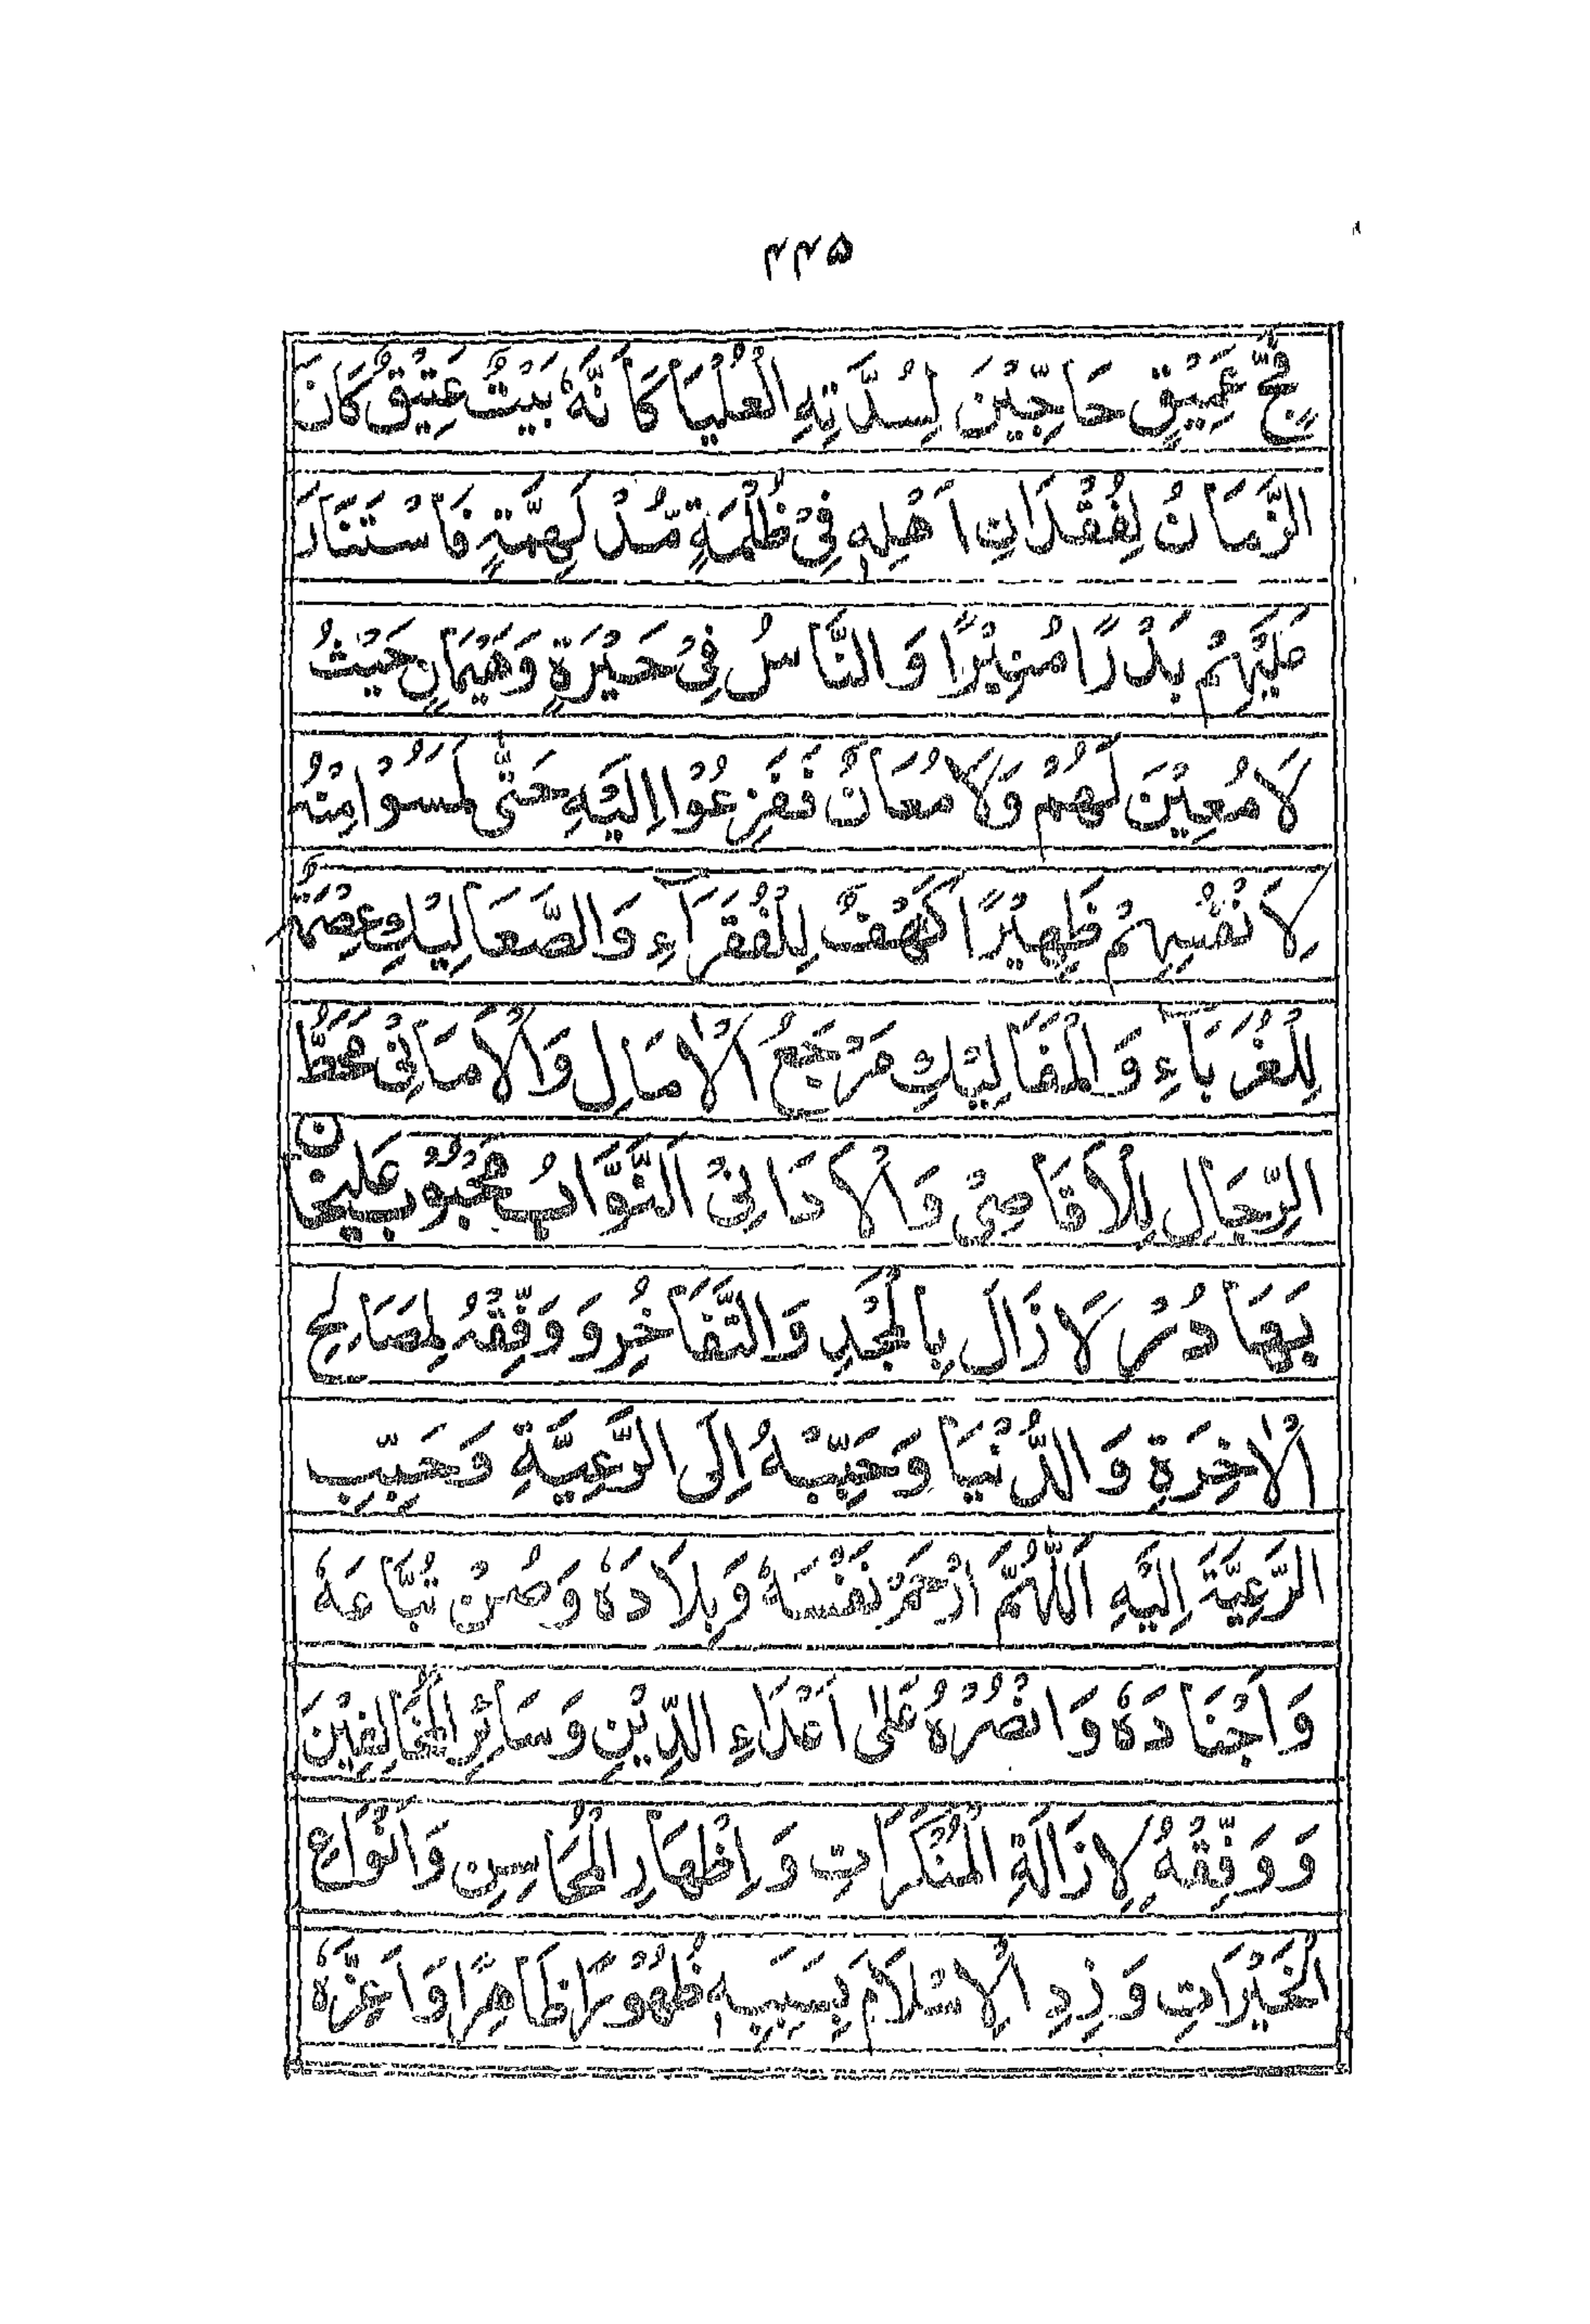 ۲۲۵
فَجٍّ عَمِيْقٍ حَاجِّيْنَ لِسُدَّتِهِ الْعُلْيَا كَاَنَّهٗ بَيْتٌ عَتِيْقٌ كَانَ
الزَّمَانُ لِفُقْدَانِ اَهْلِهٖ فِيْ ظُلْمَةٍ مُّدْلَهِمَّةٍ فَاسْتَنَارَ
عَلَيْهِمْ بَدْرًا مُنِيْرًا وَالنَّاسُ فِيْ حَيْرَةٍ وَهَيْمَانٍ حَيْثُ
لَا مُعِيْنَ لَهُمْ وَلَا مُعَانٌ فَفَزِعُوْا اِلَيْهِ حَتّٰى لَمَسُوْا مِنْهُ
لِاَنْفُسِهِمْ ظَهِيْرًا كَهْفٌ لِلْفُقَرَآءِ وَالصَّعَالِيْكِ وَعِصْمَةٌ
لِلْغُرَبَآءِ وَالْمَفَالِيْكِ مَرْجَعُ الْاٰمَالِ وَالْاَمَانِيْ مَحَطُّ
الرِّجَالِ لِلْاَقَاصِيْ وَالْاَدَانِيْ اَلنَّوَّابُ مَحْبُوْب عَلِيْخَان
بَهَادُرْ لَا زَالَ بِالْمَجْدِ وَالتَّفَاخُرِ وَ وَفِّقْهُ لِمَصَالِحِ
الْاٰخِرَةِ وَالدُّنْيَا وَحَبِّبْهُ اِلَى الرَّعِيَّةِ وَحَبِّبِ
الرَّعِيَّةَ اِلَيْهِ اَللّٰهُمَّ ارْحَمْ نَفْسَهٗ وَبِلَادَهٗ وَصُنْ تُبَّاعَهٗ
وَاَجْنَادَهٗ وَانْصُرْهُ عَلٰى اَعْدَاءِ الدِّيْنِ وَسَائِرِ الْمُخَالِفِيْنَ
وَ وَفِّقْهُ لِاِزَالَةِ الْمُنْكَرَاتِ وَاِظْهَارِ الْمَحَاسِنِ وَاَنْوَاعِ
الْخَيْرَاتِ وَزِدِ الْاِسْلَامَ بِسَبَبِهٖ ظُهُوْرًا ظَاهِرًا وَاَعِزَّهٗ